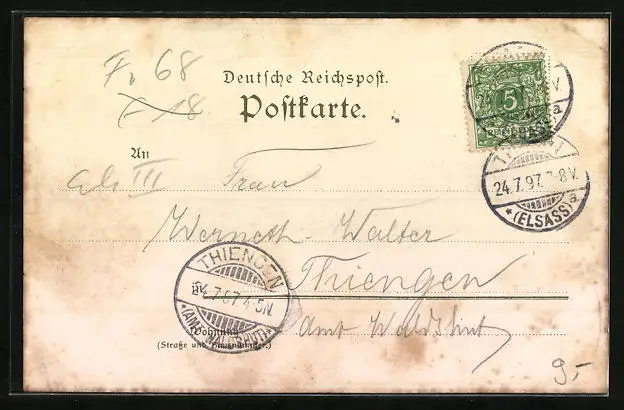 F. 68
F 18
Deutsche Reichspost.
Postkarte.
An
Els III
Frau
Werneth-Walter
in Thiengen
Amt Waldshut
Wohnung
(Straße und Hausnummer.)
9,-
5
24.7.97. 7-8V.
* (ELSASS) a
THIENGEN
24.7.97. 4-5N.
* (AMT WALDSHUT) *